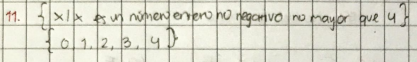 11. {x|x es un número entero no negativo no mayor que 4}
{0, 1, 2, 3, 4}